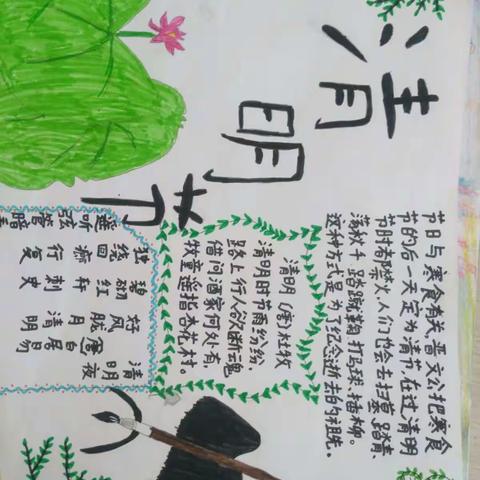 清明节
节日与寒食有关,晋文公把寒食
节的后一天定为清节,在过清明
节时都禁火人们也会去扫墓、踏青、
荡秋千、踏蹴鞠、打马球、插柳。
这种方式是为了纪念逝去的祖先。
清明(唐)杜牧
清明时节雨纷纷,
路上行人欲断魂
借问酒家何处有,
牧童遥指杏花村.
清明夜
唐白居易
好风胧月清明
碧砌红轩刺史
独线回廊行复
遥听弦管暗